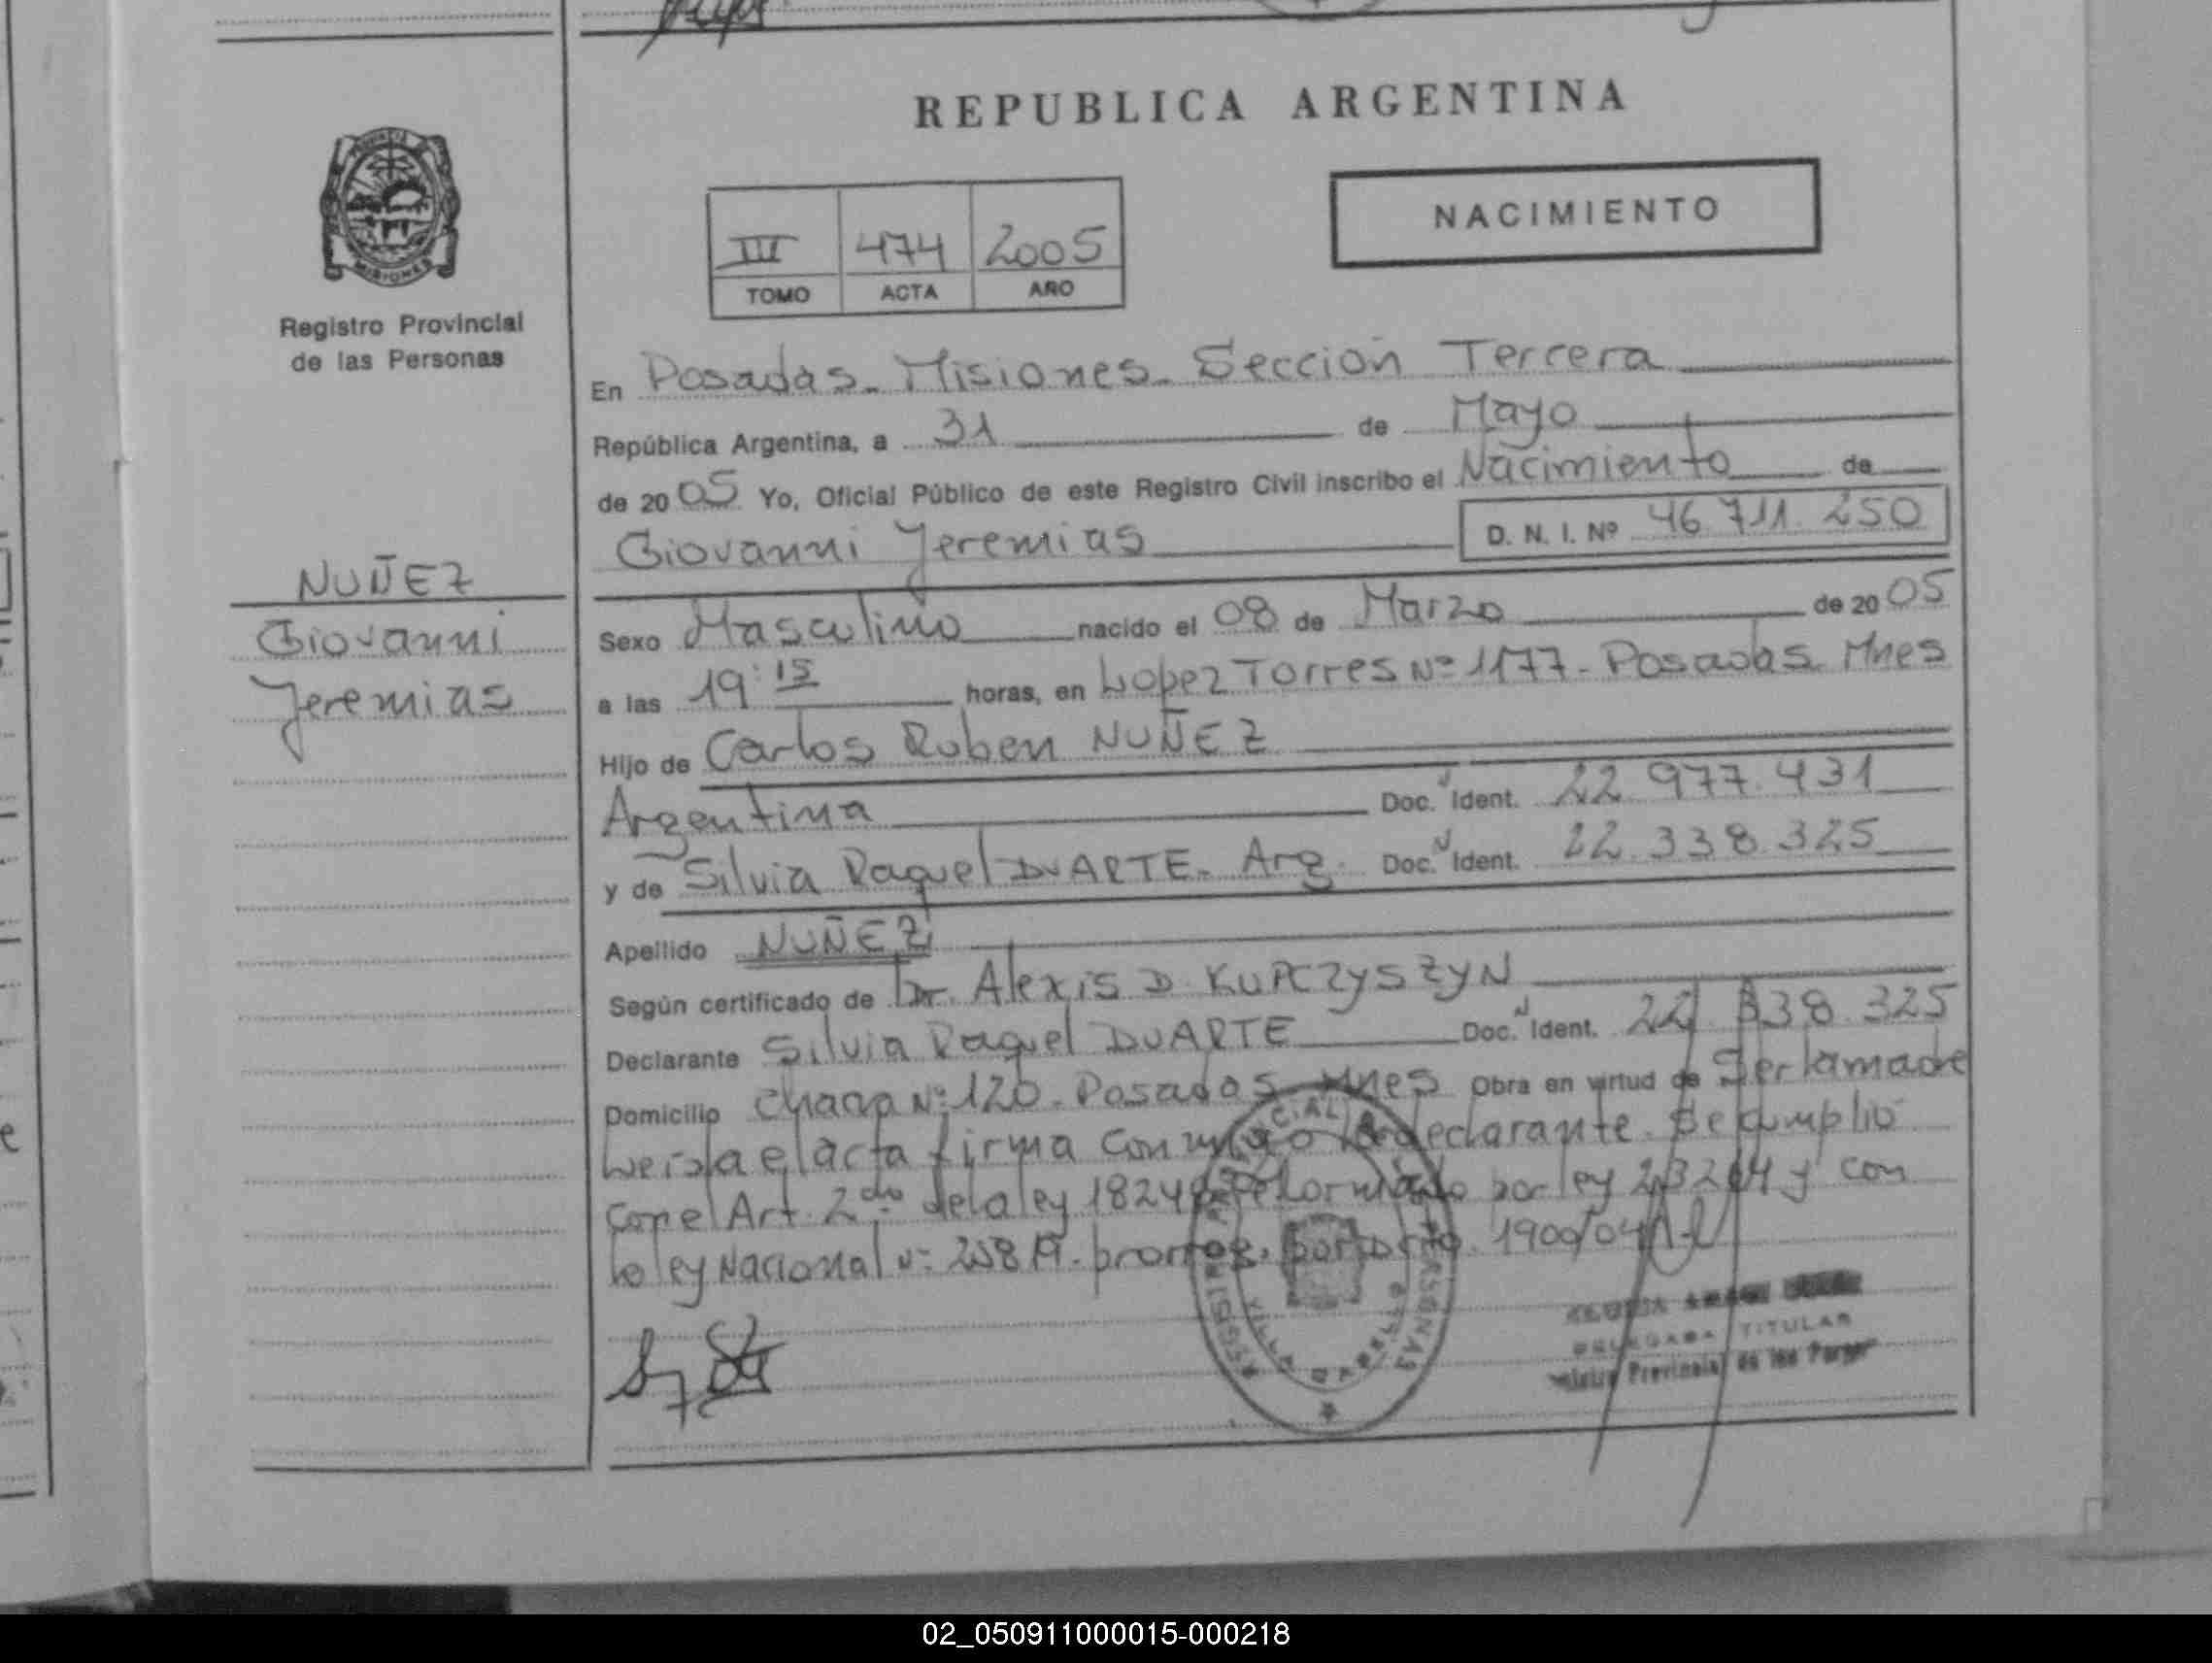 REPUBLICA ARGENTINA
PROVINCIA DE
MISIONES
Registro Provincial
de las Personas
NUÑEZ
Giovanni
Jeremias
NACIMIENTO
III 474 2005
TOMO ACTA AÑO
En Posadas - Misiones - Sección Tercera
República Argentina, a 31 de Mayo
de 2005 Yo, Oficial Público de este Registro Civil inscribo el Nacimiento de
Giovanni Jeremias D. N. I. Nº 46.711.250
Sexo Masculino nacido el 08 de Marzo de 2005
a las 19:15 horas, en Lopez Torres Nº 1177 - Posadas Mnes
Hijo de Carlos Ruben NUÑEZ
Argentina Doc. Ident. 22.977.431
y de Silvia Raquel DUARTE - Arg. Doc. Ident. 22.338.325
Apellido NUÑEZ
Según certificado de Dr. Alexis D. KUPCZYSZYN
Declarante Silvia Raquel DUARTE Doc. Ident. 22.338.325
Domicilio Chacra Nº 120 - Posadas Mnes Obra en virtud de Ser la madre
Leida el acta firma conmigo la declarante. Se cumplió
con el Art. 2do de la ley 18248 reformado por ley 23264 y con
la ley Nacional Nº 25819
1900/04
VILLA CABELLO
DELEGADA TITULAR
Provincial de las
02_050911000015-000218